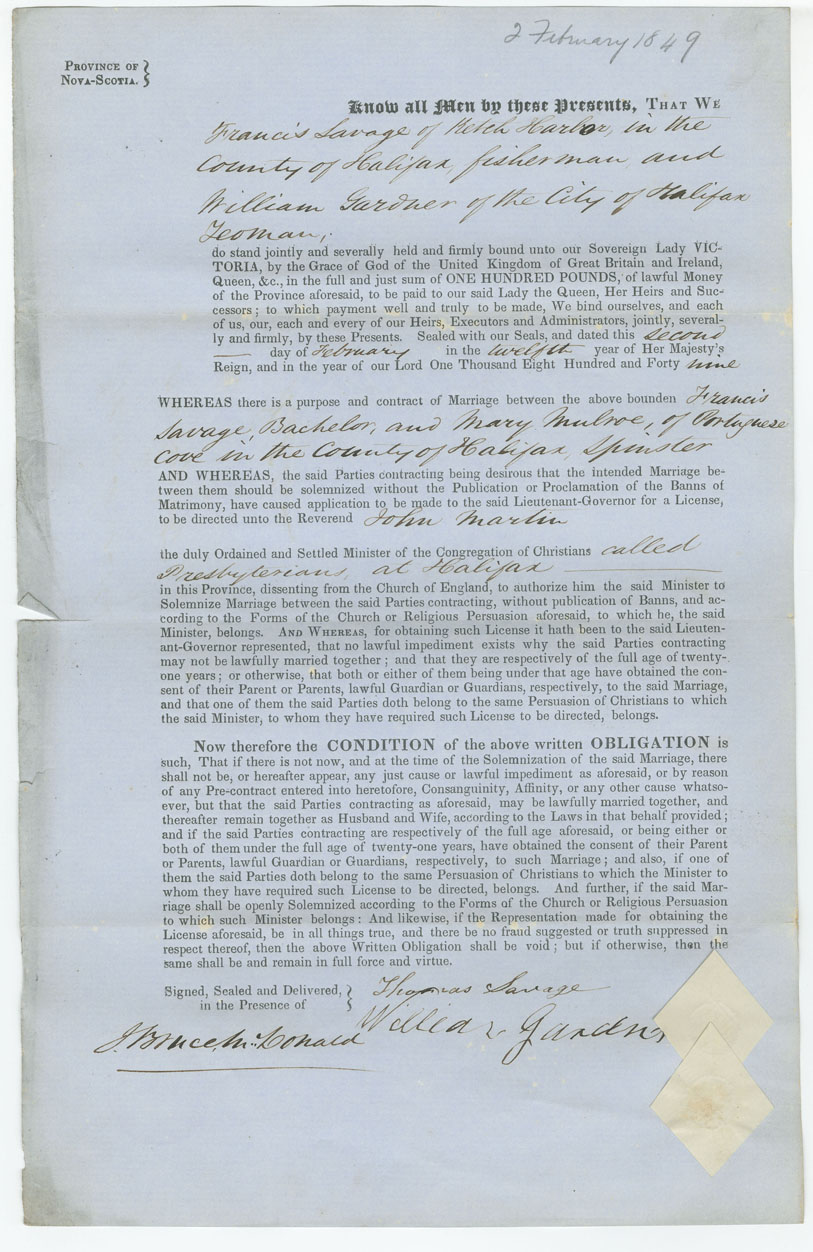 2 February 1849
PROVINCE OF
NOVA-SCOTIA.
Know all Men by these Presents, THAT WE
Francis Savage of Ketch Harbor, in the
County of Halifax, fisherman, and
William Gardner of the City of Halifax
Yeoman,
do stand jointly and severally held and firmly bound unto our Sovereign Lady VIC-
TORIA, by the Grace of God of the United Kingdom of Great Britain and Ireland,
Queen, &c., in the full and just sum of ONE HUNDRED POUNDS, of lawful Money
of the Province aforesaid, to be paid to our said Lady the Queen, Her Heirs and Suc-
cessors; to which payment well and truly to be made, We bind ourselves, and each
of us, our, each and every of our Heirs, Executors and Administrators, jointly, several-
ly and firmly, by these Presents. Sealed with our Seals, and dated this second
day of February in the twelfth year of Her Majesty's
Reign, and in the year of our Lord One Thousand Eight Hundred and Forty nine
WHEREAS there is a purpose and contract of Marriage between the above bounden Francis
Savage, Bachelor, and Mary Mulroe, of Portuguese
Cove in the County of Halifax, Spinster
AND WHEREAS, the said Parties contracting being desirous that the intended Marriage be-
tween them should be solemnized without the Publication or Proclamation of the Banns of
Matrimony, have caused application to be made to the said Lieutenant-Governor for a License,
to be directed unto the Reverend John Martin
the duly Ordained and Settled Minister of the Congregation of Christians called
Presbyterians, at Halifax
in this Province, dissenting from the Church of England, to authorize him the said Minister to
Solemnize Marriage between the said Parties contracting, without publication of Banns, and ac-
cording to the Forms of the Church or Religious Persuasion aforesaid, to which he, the said
Minister, belongs. AND WHEREAS, for obtaining such License it hath been to the said Lieuten-
ant-Governor represented, that no lawful impediment exists why the said Parties contracting
may not be lawfully married together; and that they are respectively of the full age of twenty-
one years; or otherwise, that both or either of them being under that age have obtained the con-
sent of their Parent or Parents, lawful Guardian or Guardians, respectively, to the said Marriage,
and that one of them the said Parties doth belong to the same Persuasion of Christians to which
the said Minister, to whom they have required such License to be directed, belongs.
Now therefore the CONDITION of the above written OBLIGATION is
such, That if there is not now, and at the time of the Solemnization of the said Marriage, there
shall not be, or hereafter appear, any just cause or lawful impediment as aforesaid, or by reason
of any Pre-contract entered into heretofore, Consanguinity, Affinity, or any other cause whatso-
ever, but that the said Parties contracting as aforesaid, may be lawfully married together, and
thereafter remain together as Husband and Wife, according to the Laws in that behalf provided;
and if the said Parties contracting are respectively of the full age aforesaid, or being either or
both of them under the full age of twenty-one years, have obtained the consent of their Parent
or Parents, lawful Guardian or Guardians, respectively, to such Marriage; and also, if one of
them the said Parties doth belong to the same Persuasion of Christians to which the Minister to
whom they have required such License to be directed, belongs. And further, if the said Mar-
riage shall be openly Solemnized according to the Forms of the Church or Religious Persuasion
to which such Minister belongs: And likewise, if the Representation made for obtaining the
License aforesaid, be in all things true, and there be no fraud suggested or truth suppressed in
respect thereof, then the above Written Obligation shall be void; but if otherwise, then the
same shall be and remain in full force and virtue.
Signed, Sealed and Delivered,
in the Presence of
Thomas Savage
William Gardner
J. Bruce McDonald